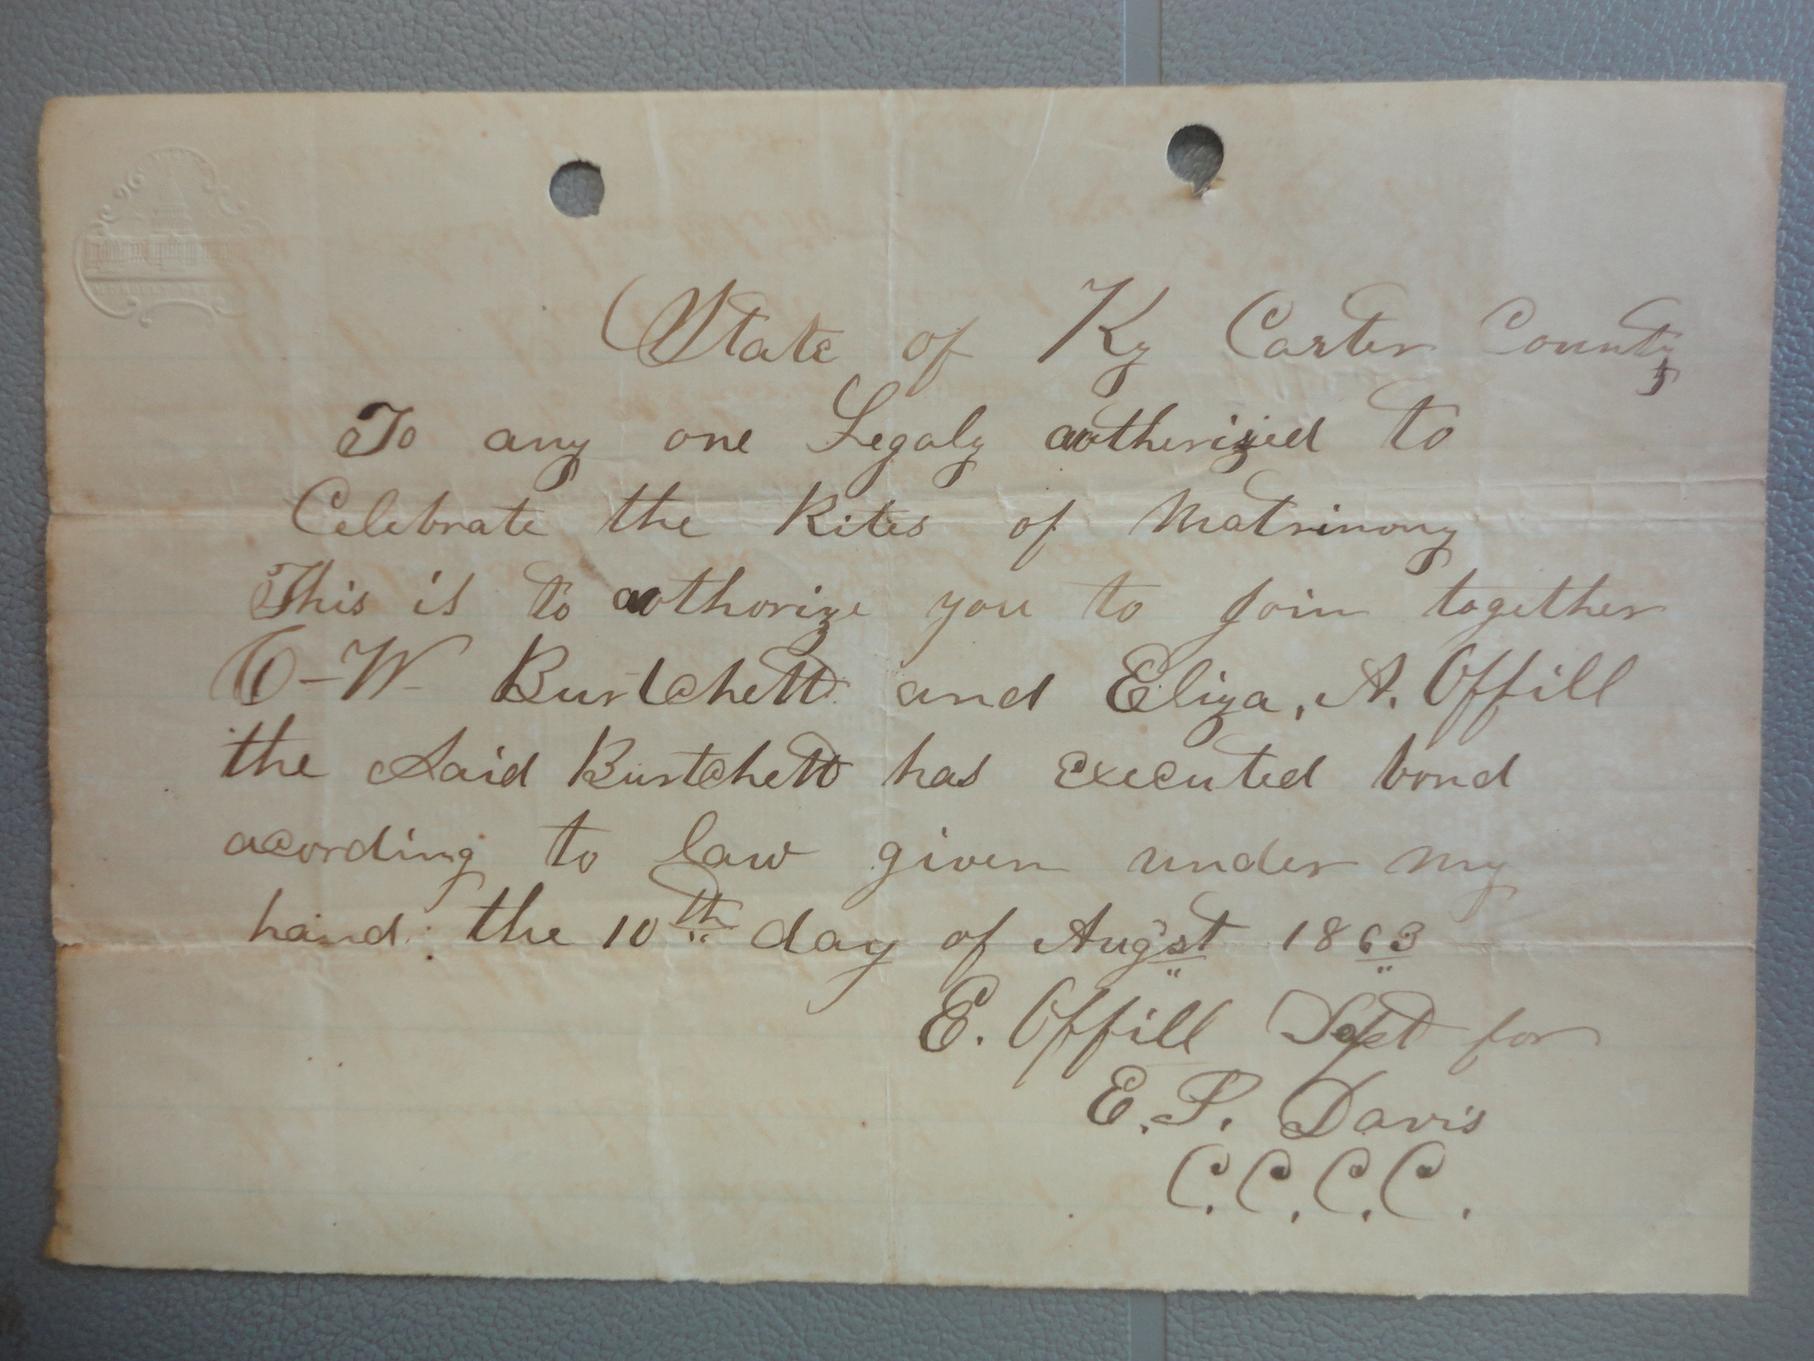 State of Ky Carter County
To any one Legaly autherized to
Celebrate the Rites of Matrimony
This is to authorize you to join together
W Burtchett and Eliza, A. Offill
the Said Burtchett has executed bond
acording to law given under my
hand the 10th day of Augst 1863
E. Offill for
E. P. Davis
C. C. C. C.